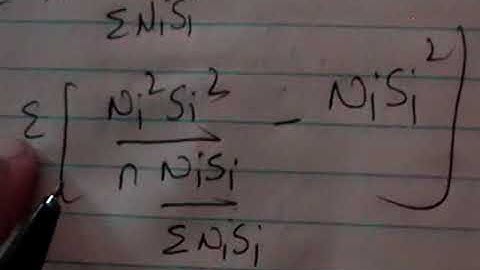 ΣNiSi
Σ[ Ni²Si² - NiSi² ]
n NiSi
ΣNiSi